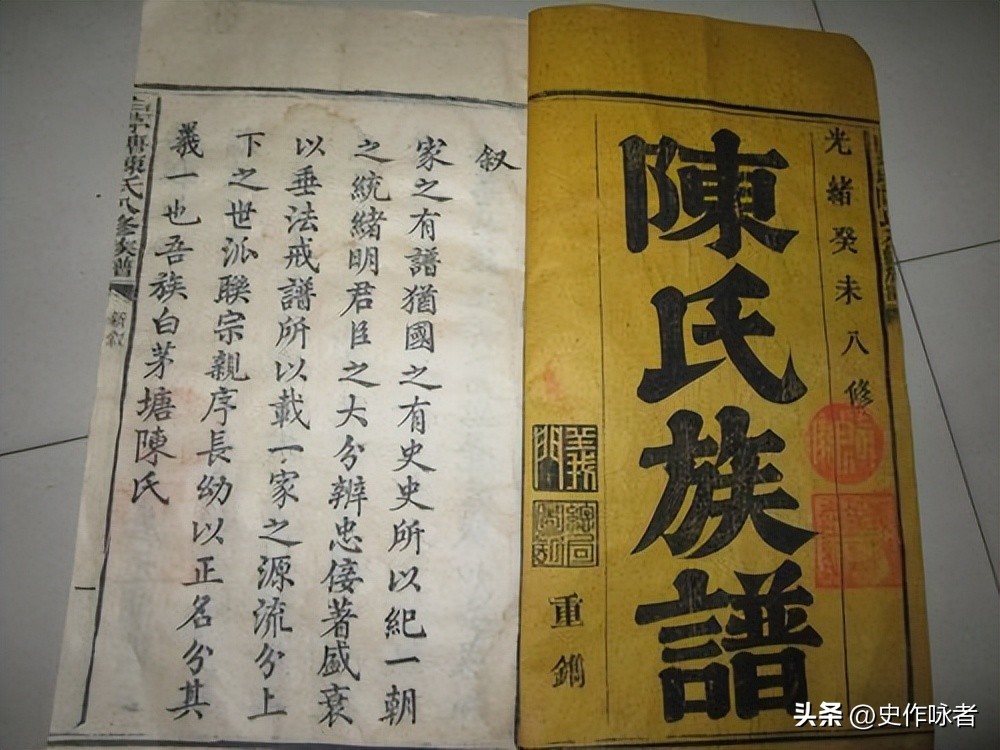 光緒癸未八修
陳氏族譜
重鐫
叙
家之有譜猶國之有史史所以紀一朝
之統緒明君臣之大分辨忠佞著盛衰
以垂法戒譜所以載一家之源流分上
下之世派聯宗親序長幼以正名分其
義一也吾族白茅塘陳氏
陳氏八修族譜
新叙
一
头条 @史作咏者